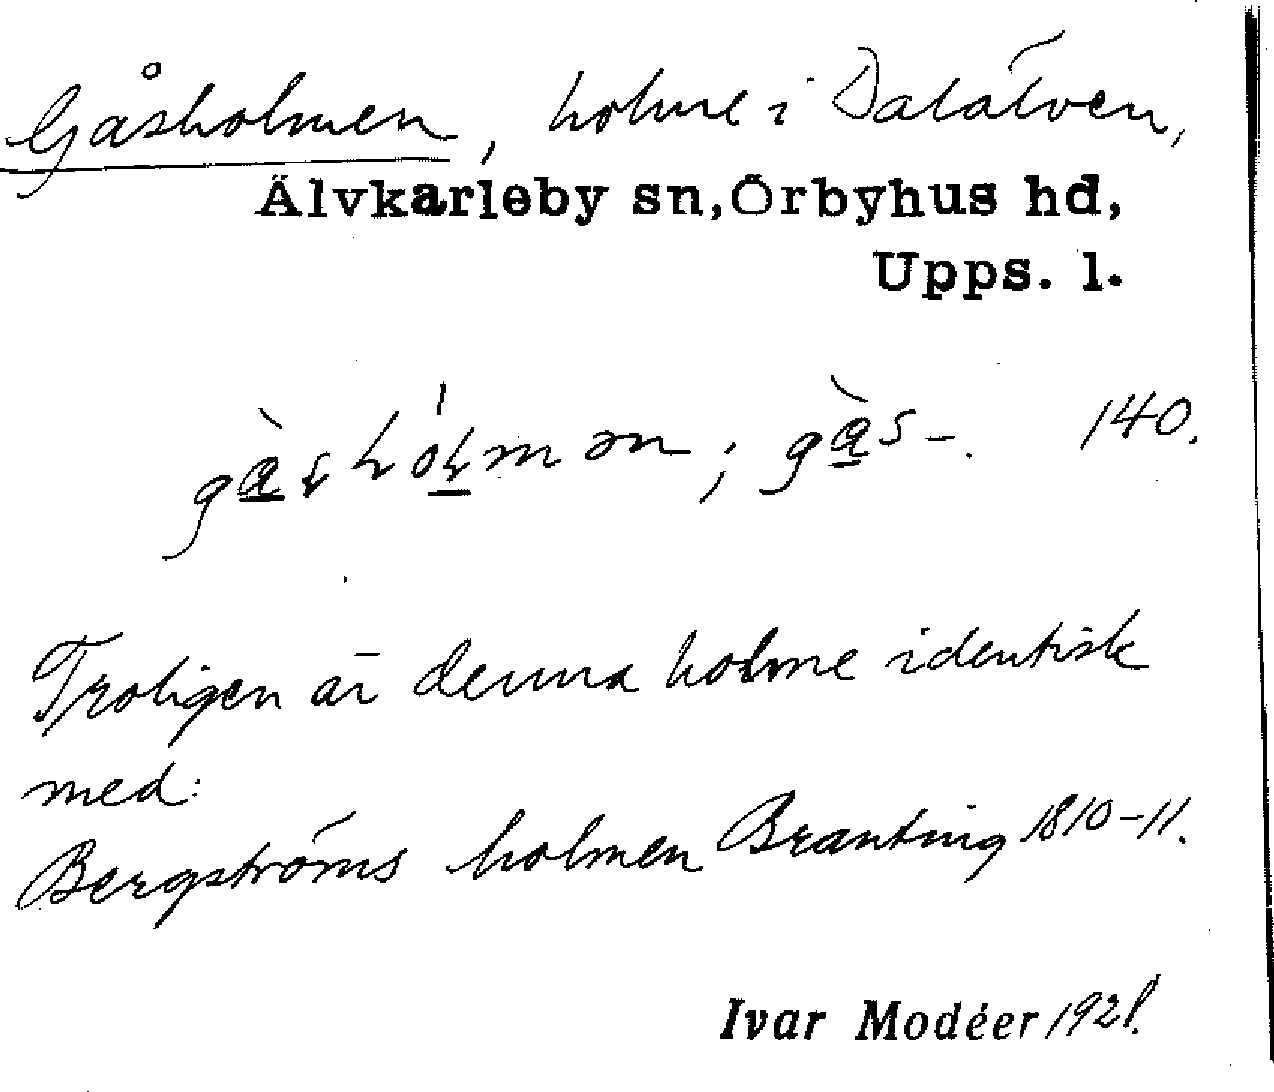 Gåsholmen, holme i Dalälven,
Älvkarleby sn, Örbyhus hd,
Upps. l.
140.
Troligen är denna holme identisk
med:
Bergströms holmen Branting 1810-11.
Ivar Modéer 1921.